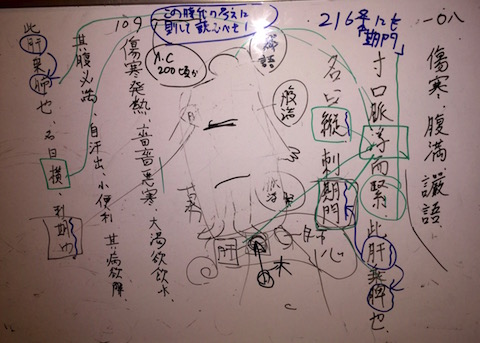 一〇八
傷寒、腹満譫語、
寸口脈浮而緊、此肝乗脾也、
名曰縦 刺期門
216号にも
「期門」
この時代の考えに
則して読むべき!
A.C
200頃か
譫語
腹満
門
木
心
109
傷寒発熱、嗇嗇悪寒、大渇欲飲水、
其腹必満、自汗出、小便利 其病欲解、
此肝乗肺也 名曰横 刺期門